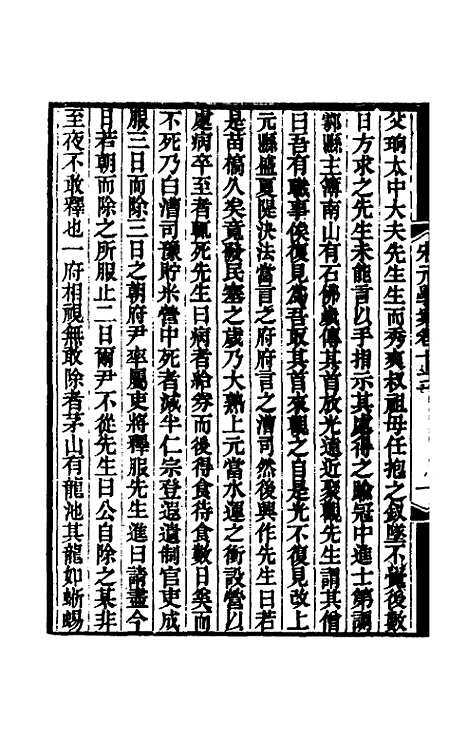 宋元學案卷十三
父珦太中大夫先生生而秀爽叔祖母任抱之釵墜不覺後數
日方求之先生未能言以手指示其處得之踰冠中進士第調
鄠縣主薄南山有石佛歲傳其首放光遠近聚觀先生謂其僧
曰吾有職事俟復見爲吾取其首來觀之自是光不復見改上
元縣盛夏隄決法當言之府府言之漕司然後興作先生曰若
是苗槁久矣竟發民塞之歲乃大熟上元當水運之衝設營以
處病卒至者輒死先生曰病者給劵而後得食待食數日矣而
不死乃白漕司豫貯米營中死者減半仁宗登遐遺制官吏成
服三日而除三日之朝府尹率屬吏將釋服先生進曰請盡今
日若朝而除之所服止二日爾尹不從先生曰公自除之某非
至夜不敢釋也一府相視無敢除者茅山有龍池其龍如蜥蜴